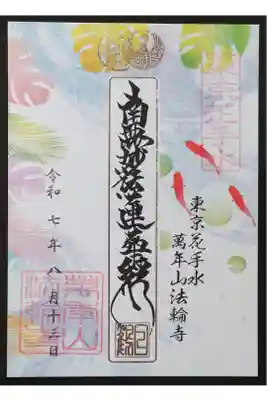 東京花手水
萬年山法輪寺
南無妙法蓮華経
令和七年八月十三日